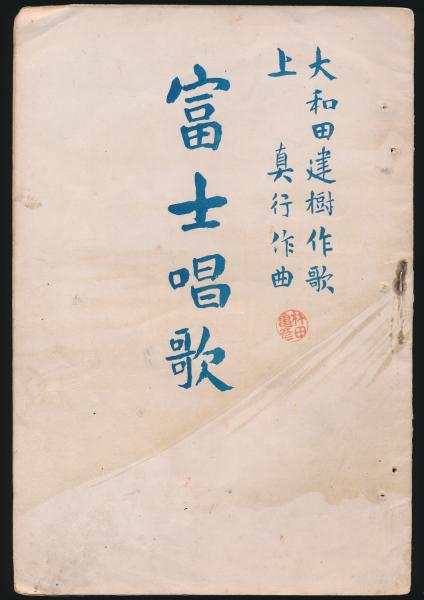 大和田建樹作歌
上真行作曲
富士唱歌